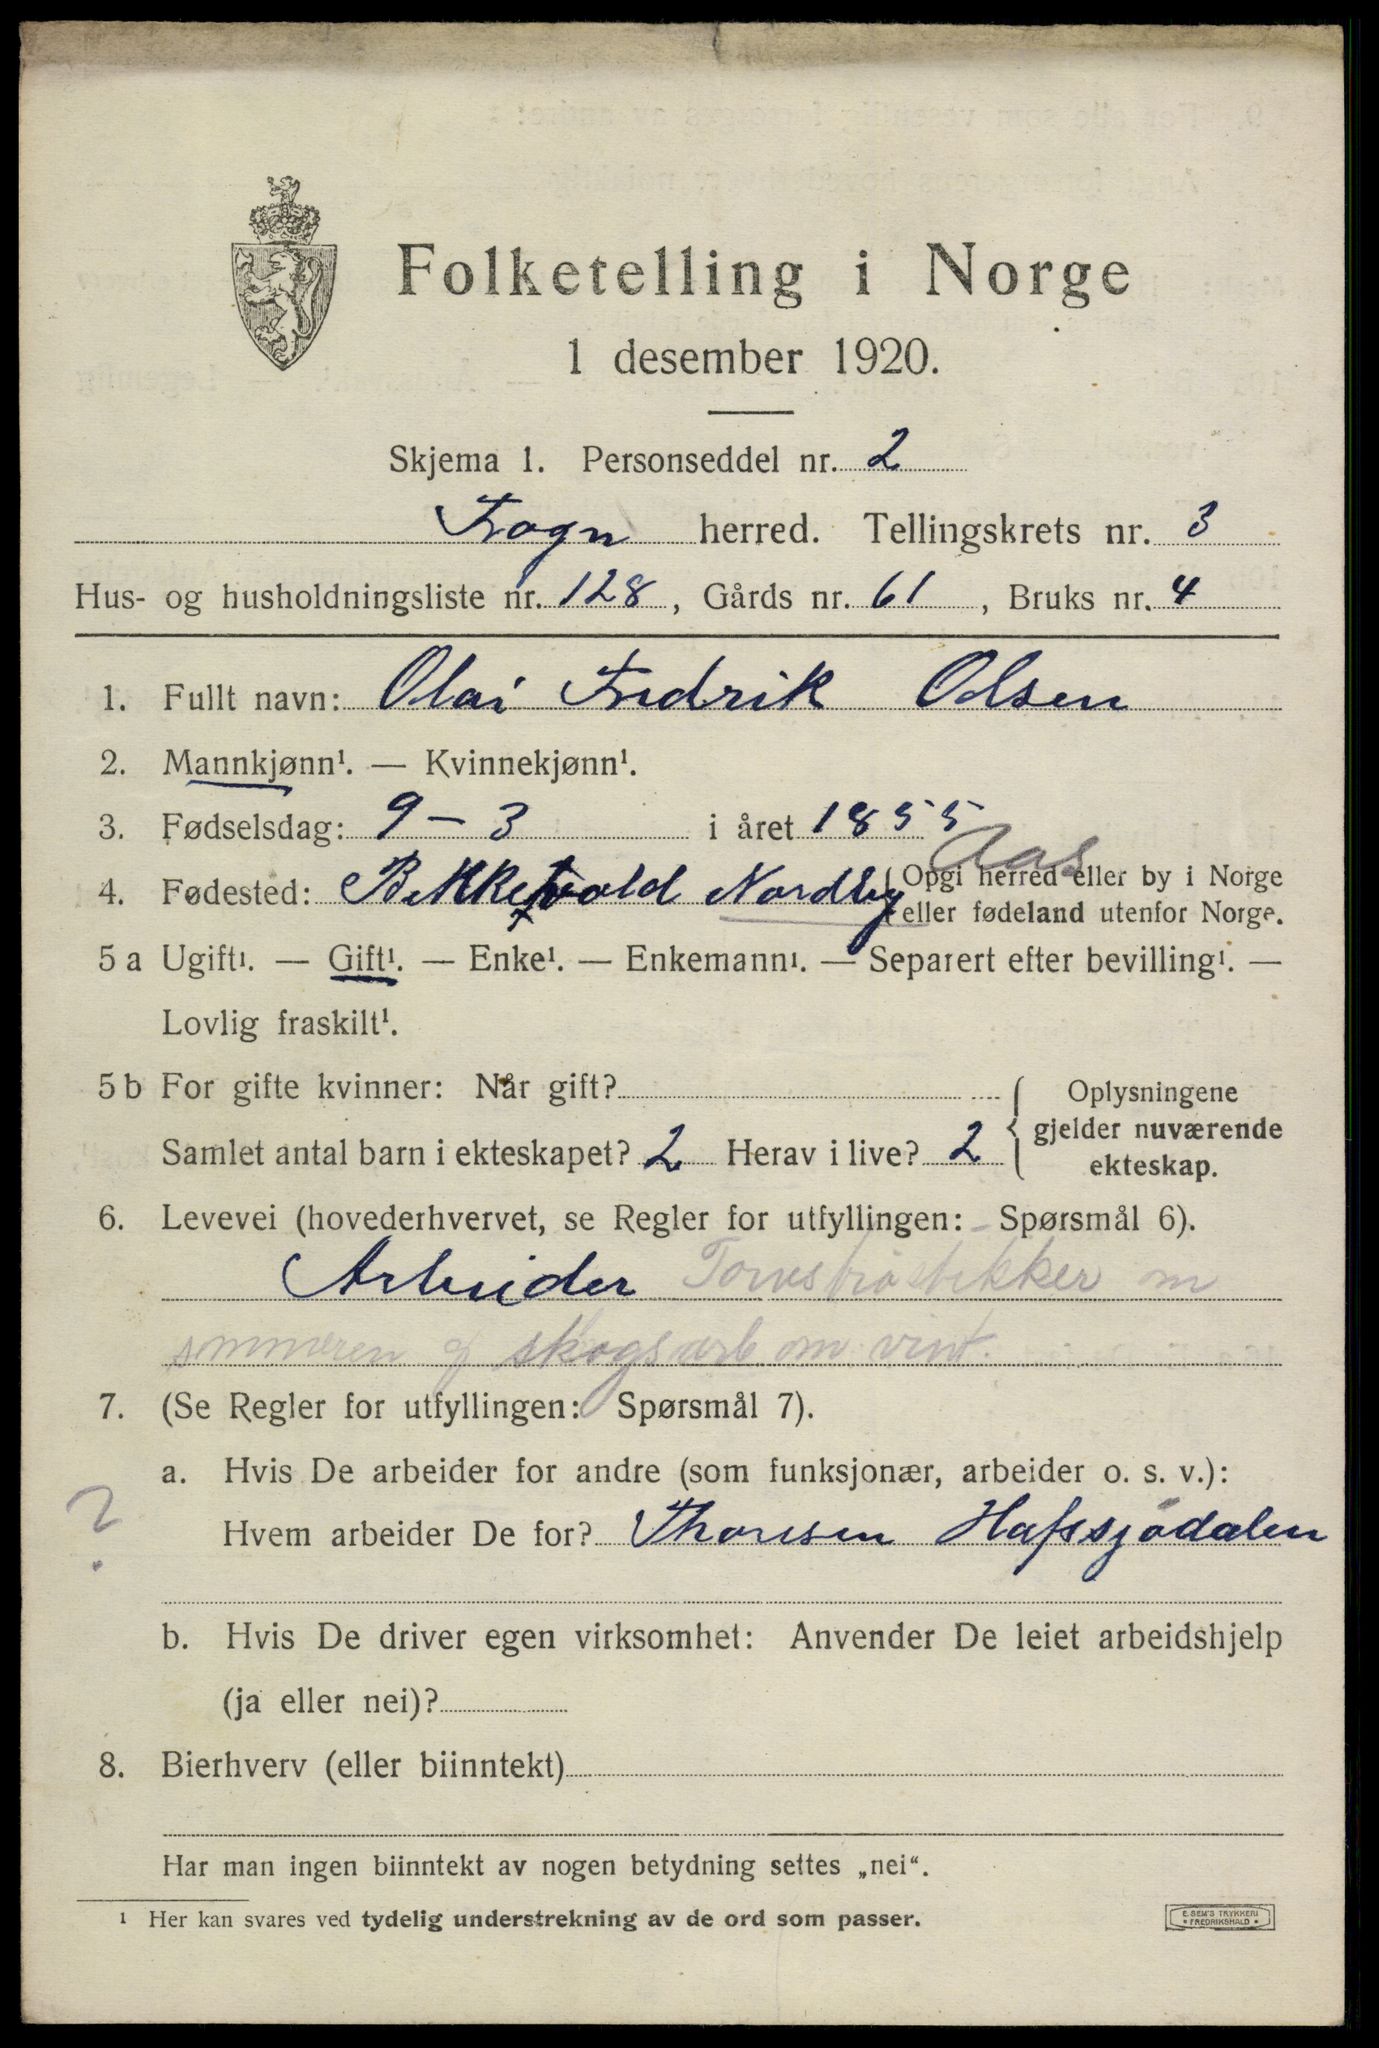 Folketelling i Norge
1 desember 1920.
Skjema 1. Personseddel nr. 2
Frogn herred. Tellingskrets nr. 3
Hus- og husholdningsliste nr. 128, Gårds nr. 61, Bruks nr. 4
1. Fullt navn: Olai Fredrik Olsen
2. Mannkjønn¹. — Kvinnekjønn¹.
3. Fødselsdag: 9 – 3 i året 1855
Aas
4. Fødested: Nordby { Opgi herred eller by i Norge
eller fødeland utenfor Norge.
5 a Ugift¹. — Gift¹. — Enke¹. — Enkemann¹. — Separert efter bevilling¹. —
Lovlig fraskilt¹.
5 b For gifte kvinner: Når gift? { Oplysningene
gjelder nuværende
Samlet antal barn i ekteskapet? 2 Herav i live? 2
ekteskap.
6. Levevei (hovederhvervet, se Regler for utfyllingen: Spørsmål 6).
Arbeider Torvstrøstikker om
sommeren og skogsarb om vint.
7. (Se Regler for utfyllingen: Spørsmål 7).
a. Hvis De arbeider for andre (som funksjonær, arbeider o. s. v.):
? Hvem arbeider De for? Thoresen Hafssjödalen
b. Hvis De driver egen virksomhet: Anvender De leiet arbeidshjelp
(ja eller nei)?
8. Bierhverv (eller biinntekt)
Har man ingen biinntekt av nogen betydning settes „nei“.
¹ Her kan svares ved tydelig understrekning av de ord som passer.
E. SEM'S TRYKKERI
FREDRIKSHALD